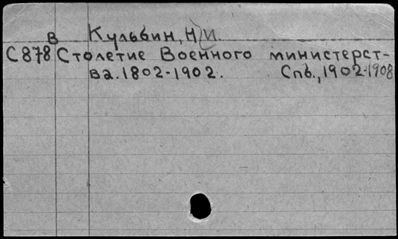 в Кульбин, Н И
С878 Столетие Военного министерст-
ва. 1802-1902. Спб., 1902-1908